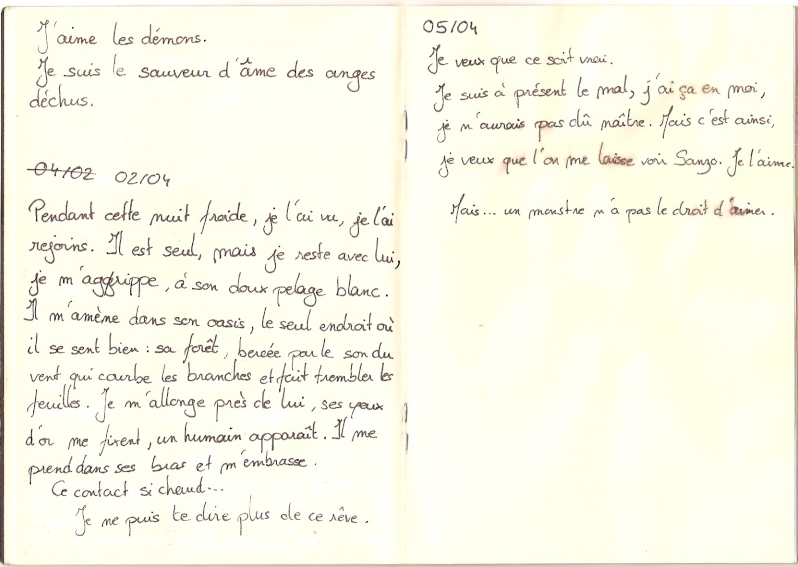 J'aime les démons.
Je suis le sauveur d'âme des anges
déchus.
04/02 02/04
Pendant cette nuit froide, je l'ai vu, je l'ai
rejoins. Il est seul, mais je reste avec lui,
je m'aggrippe, à son doux pelage blanc.
Il m'amène dans son oasis, le seul endroit où
il se sent bien : sa forêt, bercée par le son du
vent qui courbe les branches et fait trembler les
feuilles. Je m'allonge près de lui, ses yeux
d'or me fixent, un humain apparaît. Il me
prend dans ses bras et m'embrasse.
Ce contact si chaud...
Je ne puis te dire plus de ce rêve.
05/04
Je veux que ce soit vrai.
Je suis à présent le mal, j'ai ça en moi,
je n'aurais pas dû naître. Mais c'est ainsi,
je veux que l'on me laisse voir Sanzo. Je l'aime.
Mais... un monstre n'a pas le droit d'aimer.